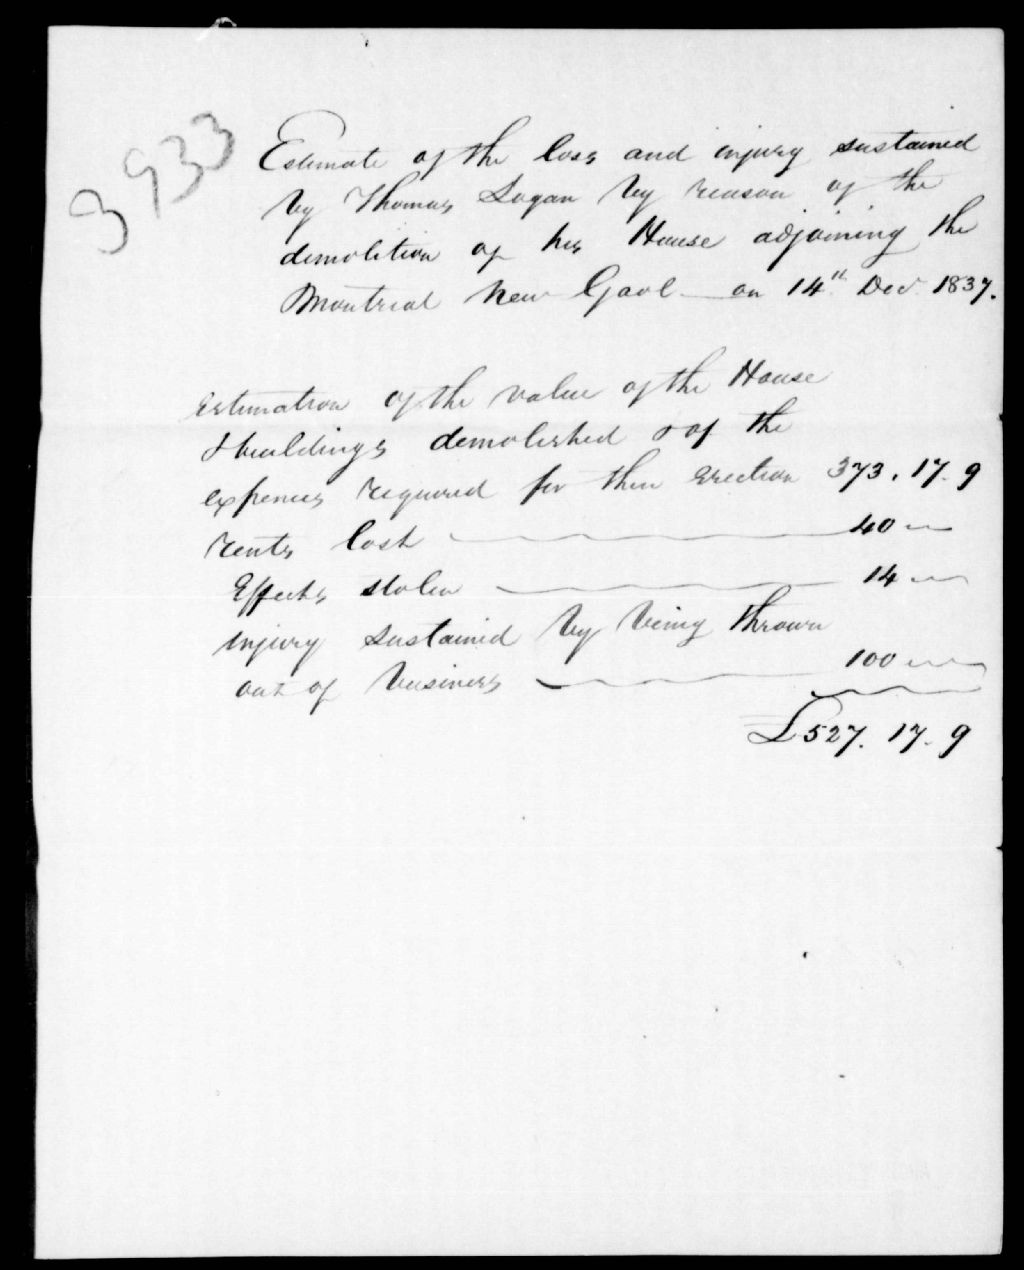 3933
Estimate of the loss and injury sustained
by Thomas Logan by reason of the
demolition of his House adjoining the
Montreal New Gaol on 14th Decr. 1837.
Estimation of the value of the House
& buildings demolished & of the
expences required for their erection 373. 17. 9
rents lost 40
Effects stolen 14
injury sustained by being thrown
out of business 100
£527. 17. 9